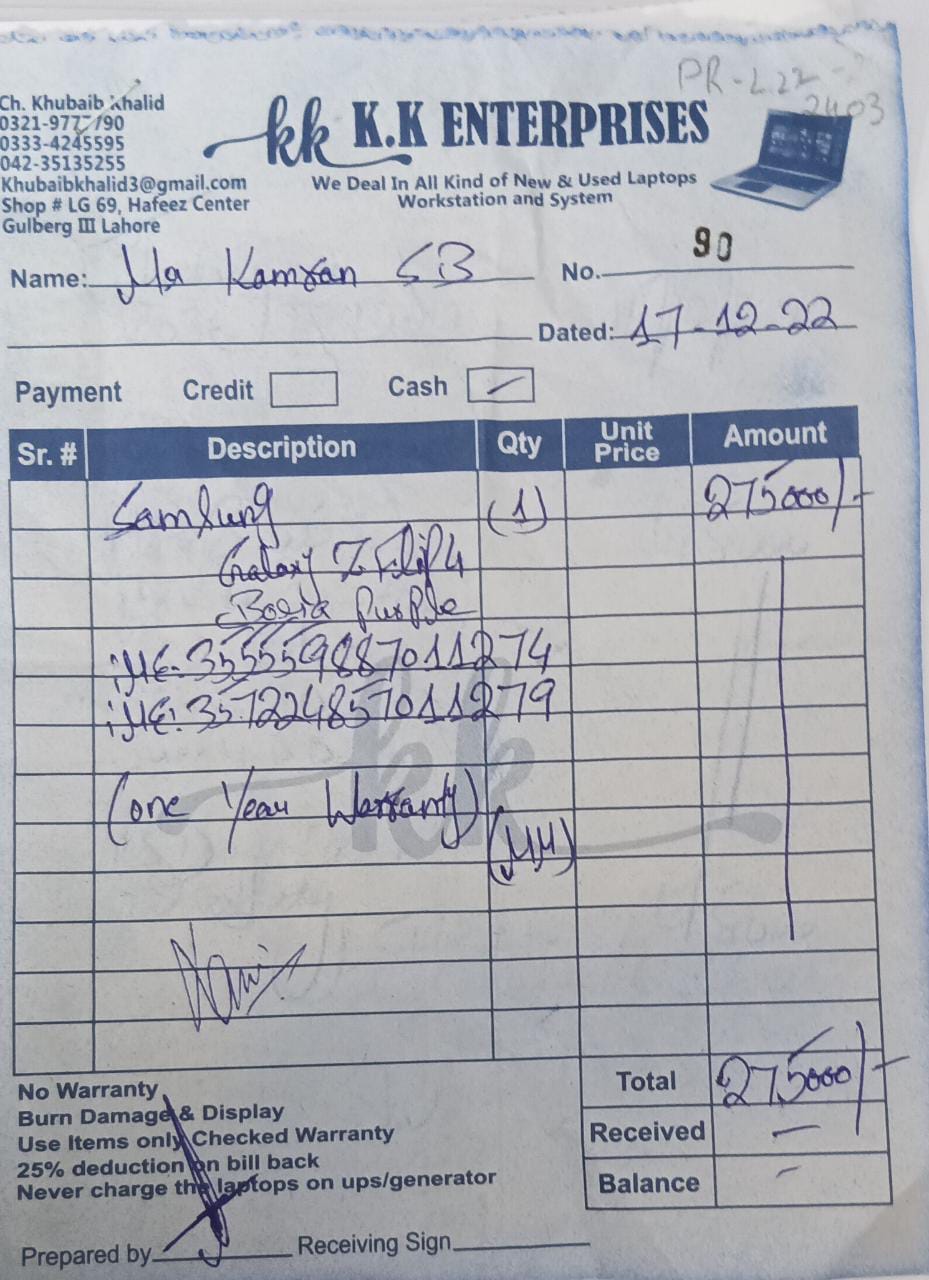 PR-L22-
2403
Ch. Khubaib Khalid
0321-977 790
0333-4245595
042-35135255
Khubaibkhalid3@gmail.com
Shop # LG 69, Hafeez Center
Gulberg III Lahore
kk K.K ENTERPRISES
We Deal In All Kind of New & Used Laptops
Workstation and System
Name: Kamran SB
No. 90
Dated: 17-12-22
Payment Credit Cash
Sr. # Description Qty Unit Price Amount
Samsung (1) 275000/-
Galaxy Z Flip 4
Bora Purple
iME: 355559887011274
iME: 357224857011279
(one Year Warranty)
kk
Total 275000/-
Received —
Balance -
No Warranty
Burn Damage & Display
Use Items only Checked Warranty
25% deduction on bill back
Never charge the laptops on ups/generator
Prepared by Receiving Sign